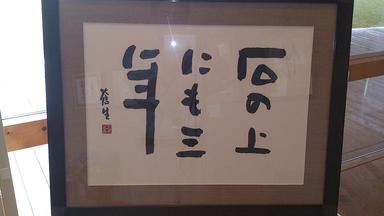 石の上
にも三
年
蒼生